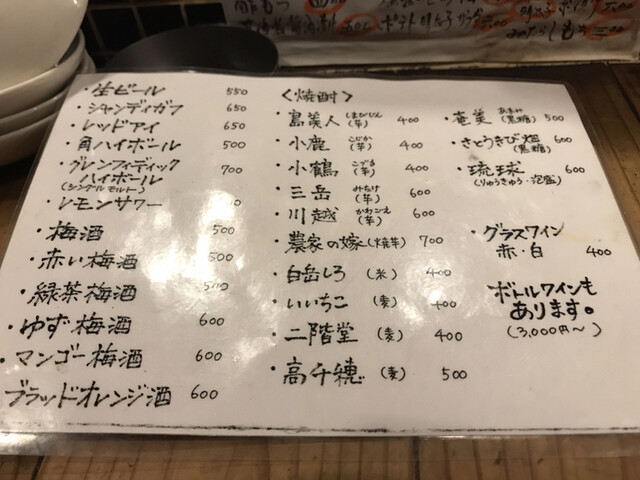 ・生ビール 550
・シャンディガフ 650
・レッドアイ 650
・角ハイボール 500
・グレンフィディック
ハイボール 700
(シングルモルト)
・レモンサワー
・梅酒 500
・赤い梅酒 500
・緑茶梅酒
・ゆず梅酒 600
・マンゴー梅酒 600
ブラッドオレンジ酒 600
〈焼酎〉
・島美人 (芋) 400
・小鹿 こじか (芋) 400
・小鶴 こづる (芋) 400
・三岳 みたけ (芋) 600
・川越 かわごえ (芋) 600
・農家の嫁 (焼芋) 700
・白岳しろ (米) 400
・いいちこ (麦) 400
・二階堂 (麦) 400
・高千穂 (麦) 500
・奄美 あまみ (黒糖) 500
・さとうきび畑 (黒糖) 600
・琉球 600
(りゅうきゅう・泡盛)
・グラスワイン
赤・白 400
ボトルワインも
あります。
(3,000円〜)